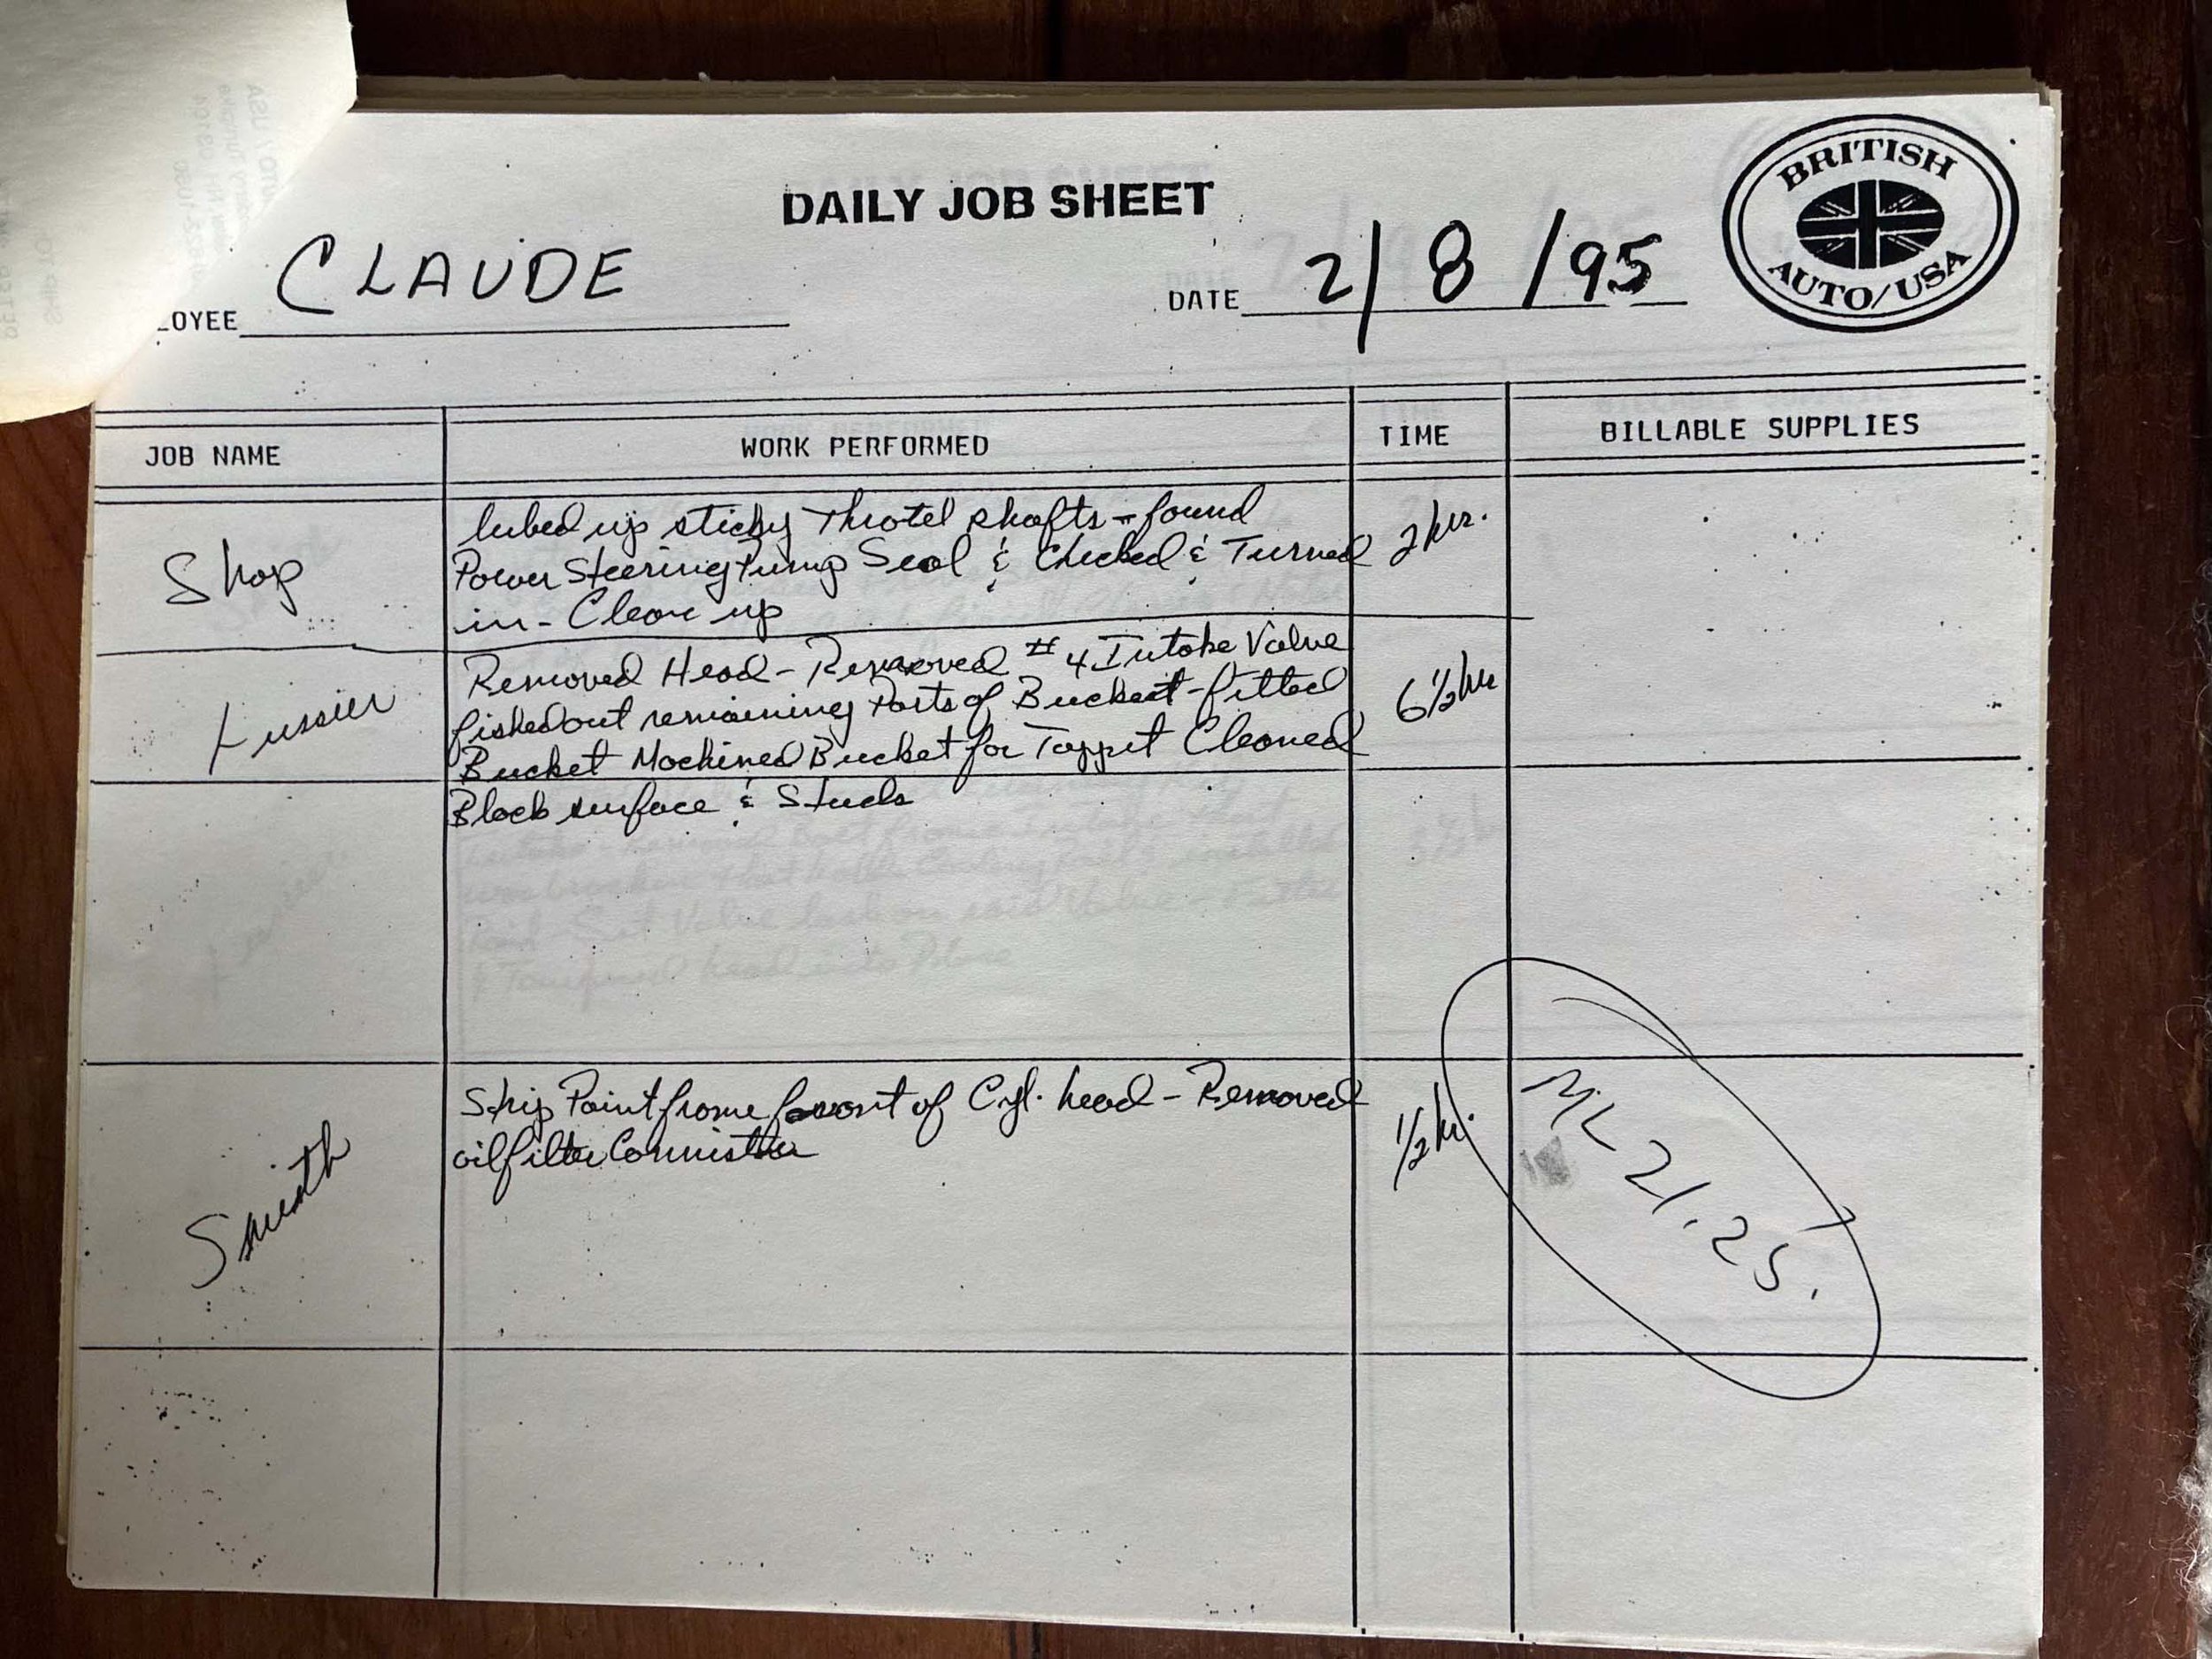 DAILY JOB SHEET
BRITISH
AUTO/USA
LOYEE CLAUDE
DATE 2/8/95
JOB NAME WORK PERFORMED TIME BILLABLE SUPPLIES
Shop
lubed up sticky Throtel shafts - found
Power Steering Pump Seal & Checked & Turned
in - Clean up
2 hr.
Lussier
Removed Head - Removed #4 Intake Valve
fished out remaining Parts of Bucket - fitted
Bucket Machined Bucket for Tappet Cleaned
Block surface & Studs
6 1/2 hr
Smith
Strip Paint from front of Cyl. head - Removed
oil filter Cannister
1/2 hr.
ML 21.25.